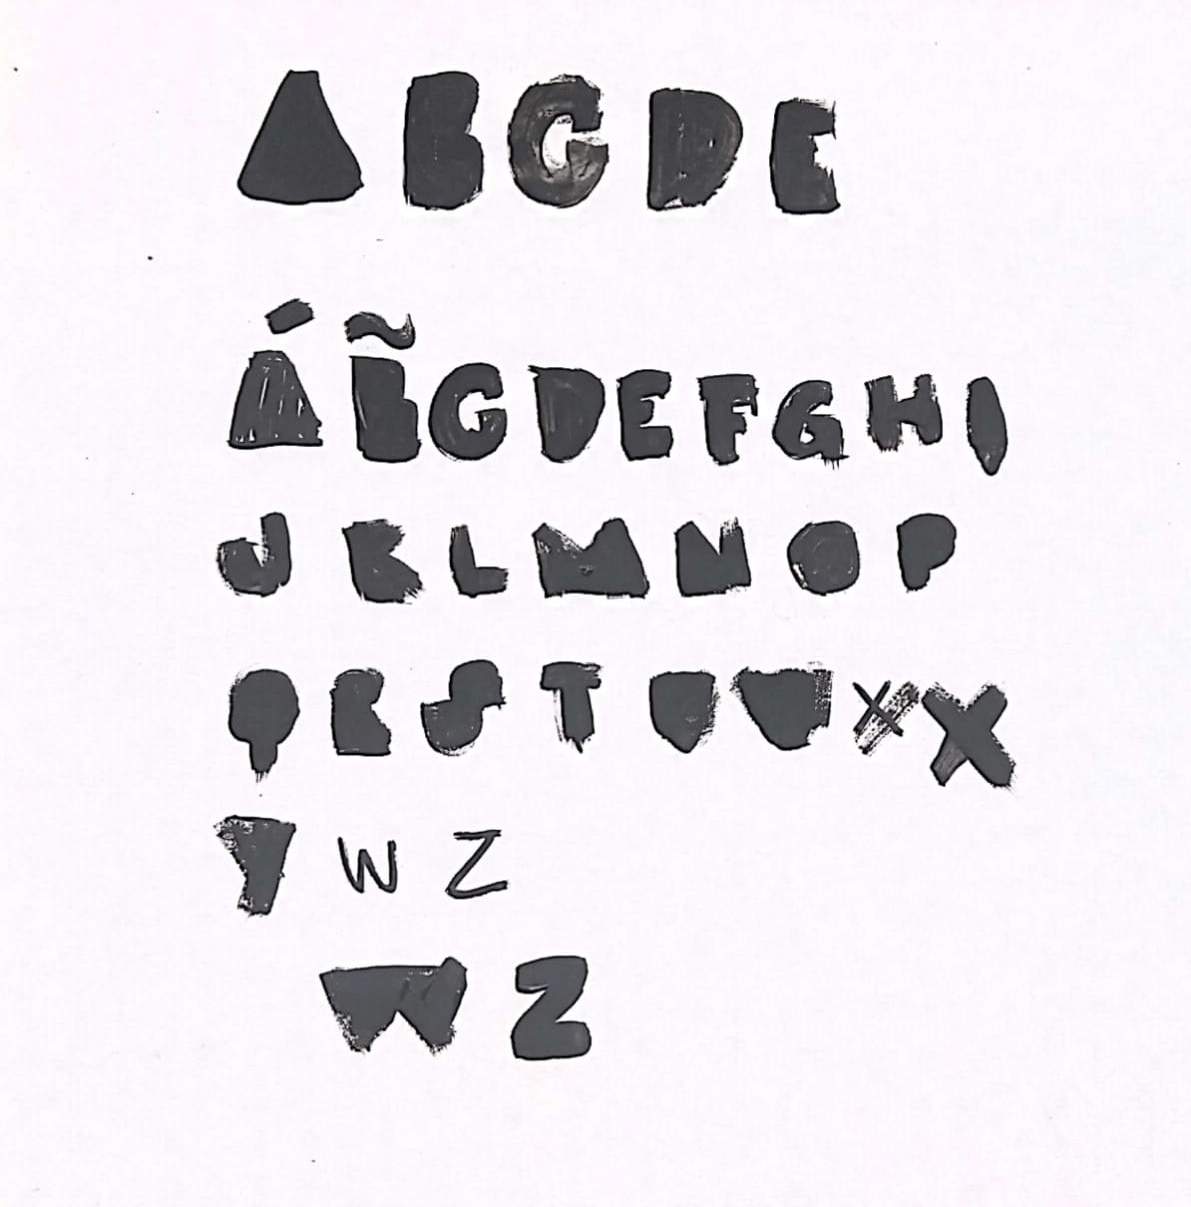 A B C D E
Á B̃ C D E F G H I
J K L M N O P
Q R S T U V X X
Y W Z
W Z